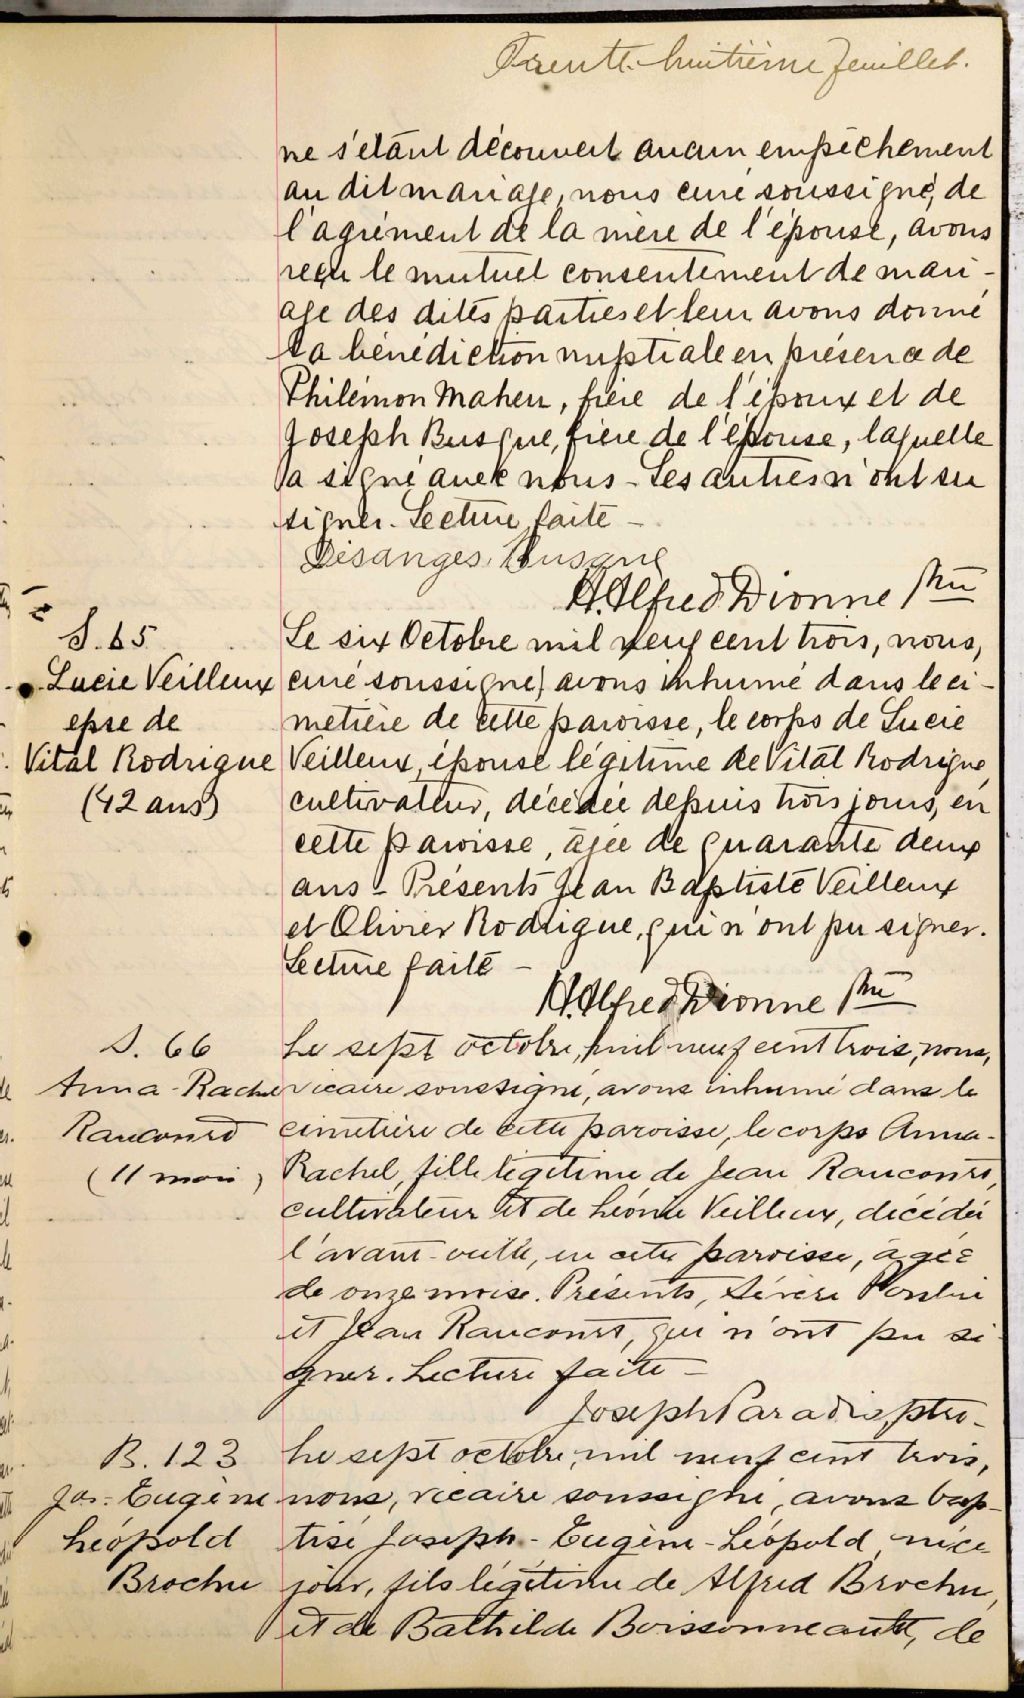 Trente-huitième feuillet.
ne s'étant découvert aucun empêchement
au dit mariage, nous curé soussigné, de
l'agrément de la mère de l'épouse, avons
reçu le mutuel consentement de mari-
age des dites parties et leur avons donné
la bénédiction nuptiale en présence de
Philémon Maheu, frère de l'époux et de
Joseph Busque, frère de l'épouse, laquelle
a signé avec nous - Les autres n'ont su
signer. Lecture faite -
Désanges Busque
H. Alfred Dionne Ptre
S. 65
Lucie Veilleux
epse de
Vital Rodrigue
(42 ans)
Le six Octobre mil neuf cent trois, nous,
curé soussigné, avons inhumé dans le ci-
metière de cette paroisse, le corps de Lucie
Veilleux, épouse légitime de Vital Rodrigue,
cultivateur, décédée depuis trois jours, en
cette paroisse, âgée de quarante deux
ans - Présents Jean Baptiste Veilleux
et Olivier Rodrigue, qui n'ont pu signer.
Lecture faite -
H. Alfred Dionne Ptre
S. 66
Anna-Rachel
Raucourt
(11 mois)
Le sept octobre, mil neuf cent trois, nous,
vicaire soussigné, avons inhumé dans le
cimetière de cette paroisse, le corps Anna-
Rachel, fille légitime de Jean Raucourt,
cultivateur et de Léonie Veilleux, décédée
l'avant-veille, en cette paroisse, âgée
de onze mois. Présents, Sévère Poulin
et Jean Raucourt, qui n'ont pu si-
gner. Lecture faite -
Joseph Paradis, ptre-
B. 123
Jos. Eugène
Léopold
Brochu
Le sept octobre, mil neuf cent trois,
nous, vicaire soussigné, avons bap-
tisé Joseph-Eugène-Léopold, né ce
jour, fils légitime de Alfred Brochu,
et de Bathilde Boissonneault, de